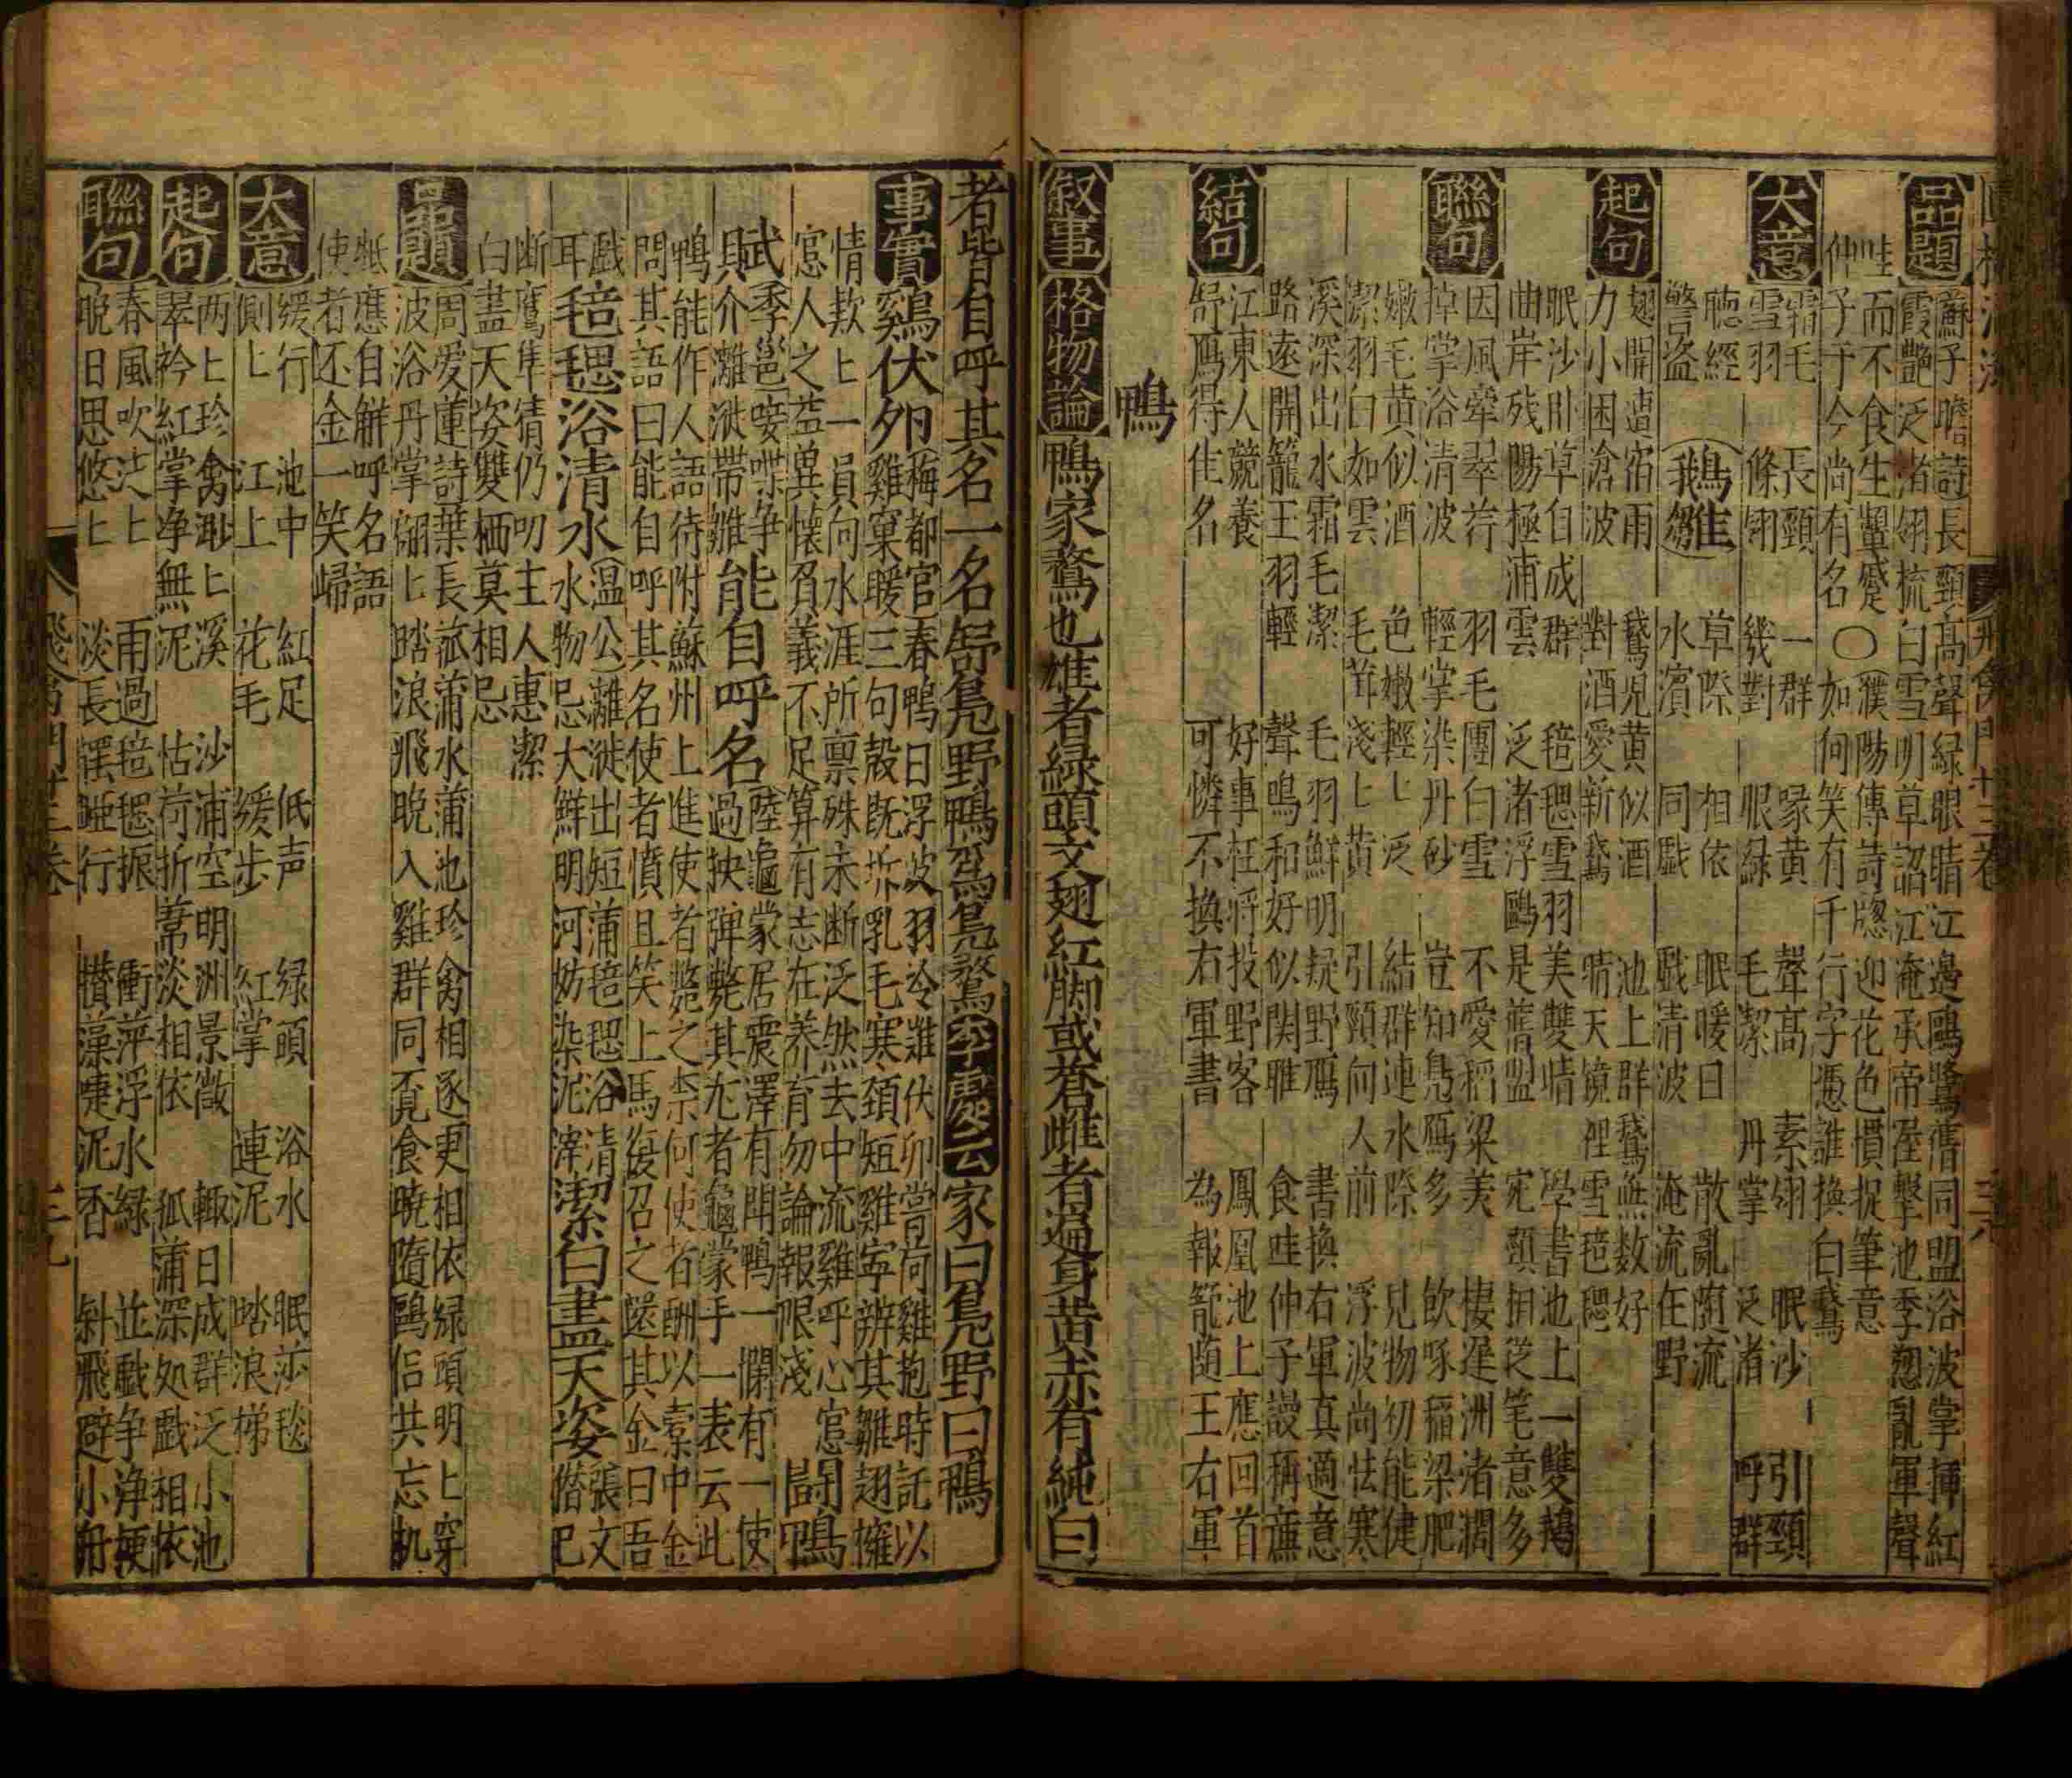 品題
蘇子瞻詩長頸高聲緑眼睛江邊鷗鷺舊同盟浴波掌揮紅
霞艷泛渚翎梳白雪明草詔江淹承帝渥擊池季愬亂軍聲
哇而不食生顰蹙〇濮陽傳詩牕迎花色慣捉筆意
仲子于今尚有名 如何笑有千行字憑誰換白鵞
大意
霜毛 長頸 一群 喙黄 聲高 素翎 眠沙 引頸
雪羽 條翎 幾對 眼緑 毛潔 丹掌 泛渚 呼群
聴經 鵝雛 草際 相依 眠暖日 散亂随流
警盗 鵝雛 水濱 同戲 戲清波 淹流在野
起句
翅開遭宿雨 鵞児黄似酒 池上群鵞無数好
力小困滄波 對酒愛新鵞 晴天鏡裡雪毰毸
眠沙卧草自成群 毰毸雪羽美雙晴 學書池上一雙鵝
曲岸残陽極浦雲 泛渚浮鷗是舊盟 宛頸相従笔意多
聯句
因風牽翠荇 羽毛團白雪 不愛稻粱美 棲遲洲渚濶
掉掌浴清波 輕掌染丹砂 豈知鳬鴈多 飲啄稲梁肥
嫩毛黄似酒 色嫩輕上泛 結群連水際 見物初能健
潔羽白如雲 毛茸淺上黄 引頸向人前 浮波尚怯寒
溪深出水霜毛潔 毛羽鮮明疑野鴈 書換右軍真適意
路遠開籠玉羽輕 聲鳴和好似関雎 食哇仲子謾稱亷
結句
江東人競養 好事枉将投野客 鳳凰池上應回首
舒鴈得佳名 可憐不換右軍書 為報籠随王右軍
鴨
叙事 格物論 鴨家鶩也雄者緑頭文翅紅脚或蒼雌者遍身黄赤有純白
者皆自呼其名一名舒鳬野鴨爲鳬鶩李慶云家曰鳬野曰鴨
事實 鷄伏夘 梅都官春鴨日浮波羽冷難伏卵嘗荷雞抱時託以
雞窠暖三旬殻既坼乳毛寒頚短雞寕辨其雛翅擁
情欵上一員向水涯所禀殊未断泛然去中流雞呼心
㝓人之益異懐負義不足算有志在养育勿論報眼淺 鬪鴨
武季邕唼喋争 能自呼名 陸龜蒙居震澤有鬪鴨一闌有一使
具介離漇帯雛 過挾弹斃其尢者龜蒙手一表云此
鴨能作人語待附蘇州上進使者斃之柰何使者酬以橐中金
問其語曰能自呼其名使者憤且笑上馬復召之還其金曰吾
戲 毰毸浴清水 温公離漇出短蒲毰毸浴清 潔白盡天姿 張文
耳 水物忌大鮮明河妨染泥滓 僭巴
断鷹隼猜仍叨主人惠潔
白盡天姿雙栖莫相忌
品題
周愛蓮詩葉長菰蒲水蒲池珍禽相逐更相依緑頭明上穿
波浴丹掌翩上踏浪飛晚入雞群同覔食暁随鷗侣共忘机
牴應自觧呼名語
使者还金一笑歸
大意
緩行 池中 紅足 低声 緑頭 浴水 眠莎毯
側上 江上 花毛 缓步 紅掌 連泥 踏浪梯
起句
两上珍禽漱上溪 沙浦空明洲景微 輙日成群泛小池
翠衿紅掌净無泥 怙荷折葦淡相依 狐蒲深処戲相依
聯句
春風吹泛上 雨過毰毸振 衝萍浮水緑 並戲争浄梗
晩日思悠上 淡長䅉䅉行 攢藻唼泥香 斜飛避小舟
飛禽門廿三卷
三九
飛禽門廿三卷
三八